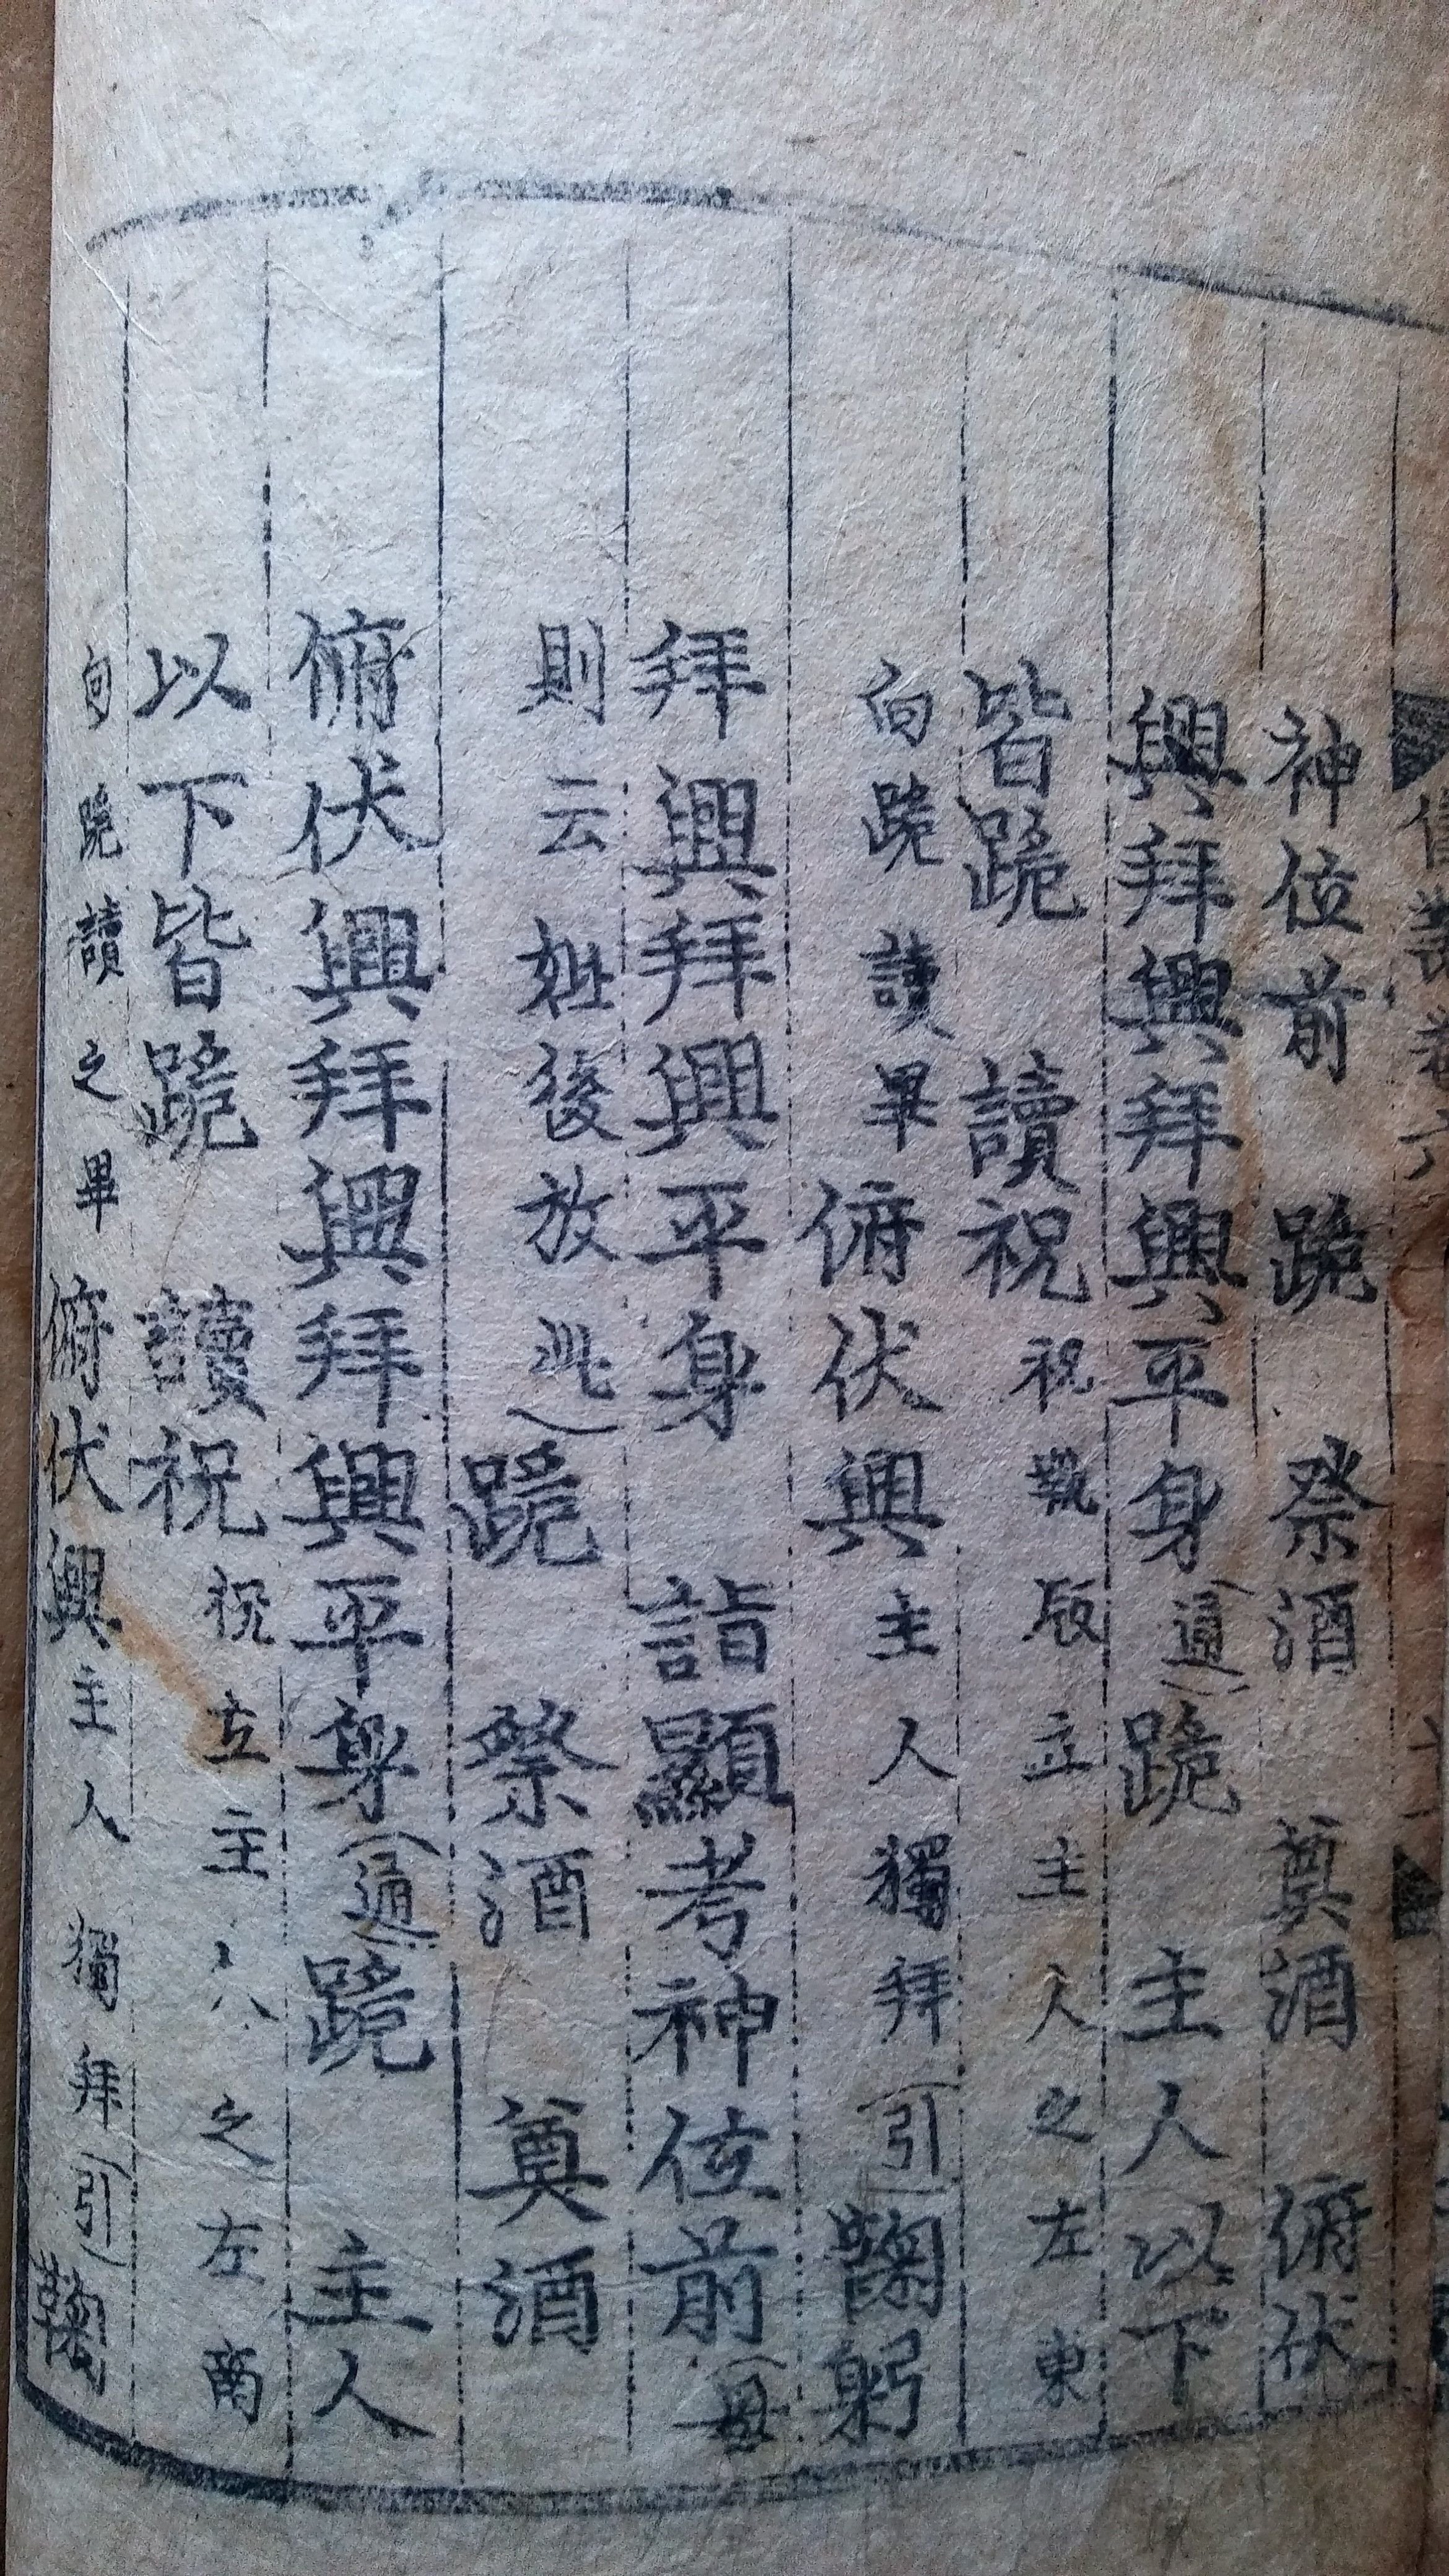 神位前 跪 祭酒 奠酒 俯伏
興拜興拜興平身(通)跪 主人以下
皆跪 讀祝 祝執版立主人之左東
向跪讀畢 俯伏興 主人獨拜(引)鞠躬
拜興拜興平身 詣顯考神位前(母
則云妣後放此)跪 祭酒 奠酒
俯伏興拜興拜興平身(通)跪 主人
以下皆跪 讀祝 祝立主人之左南
向跪讀之畢 俯伏興 主人獨拜(引)鞠